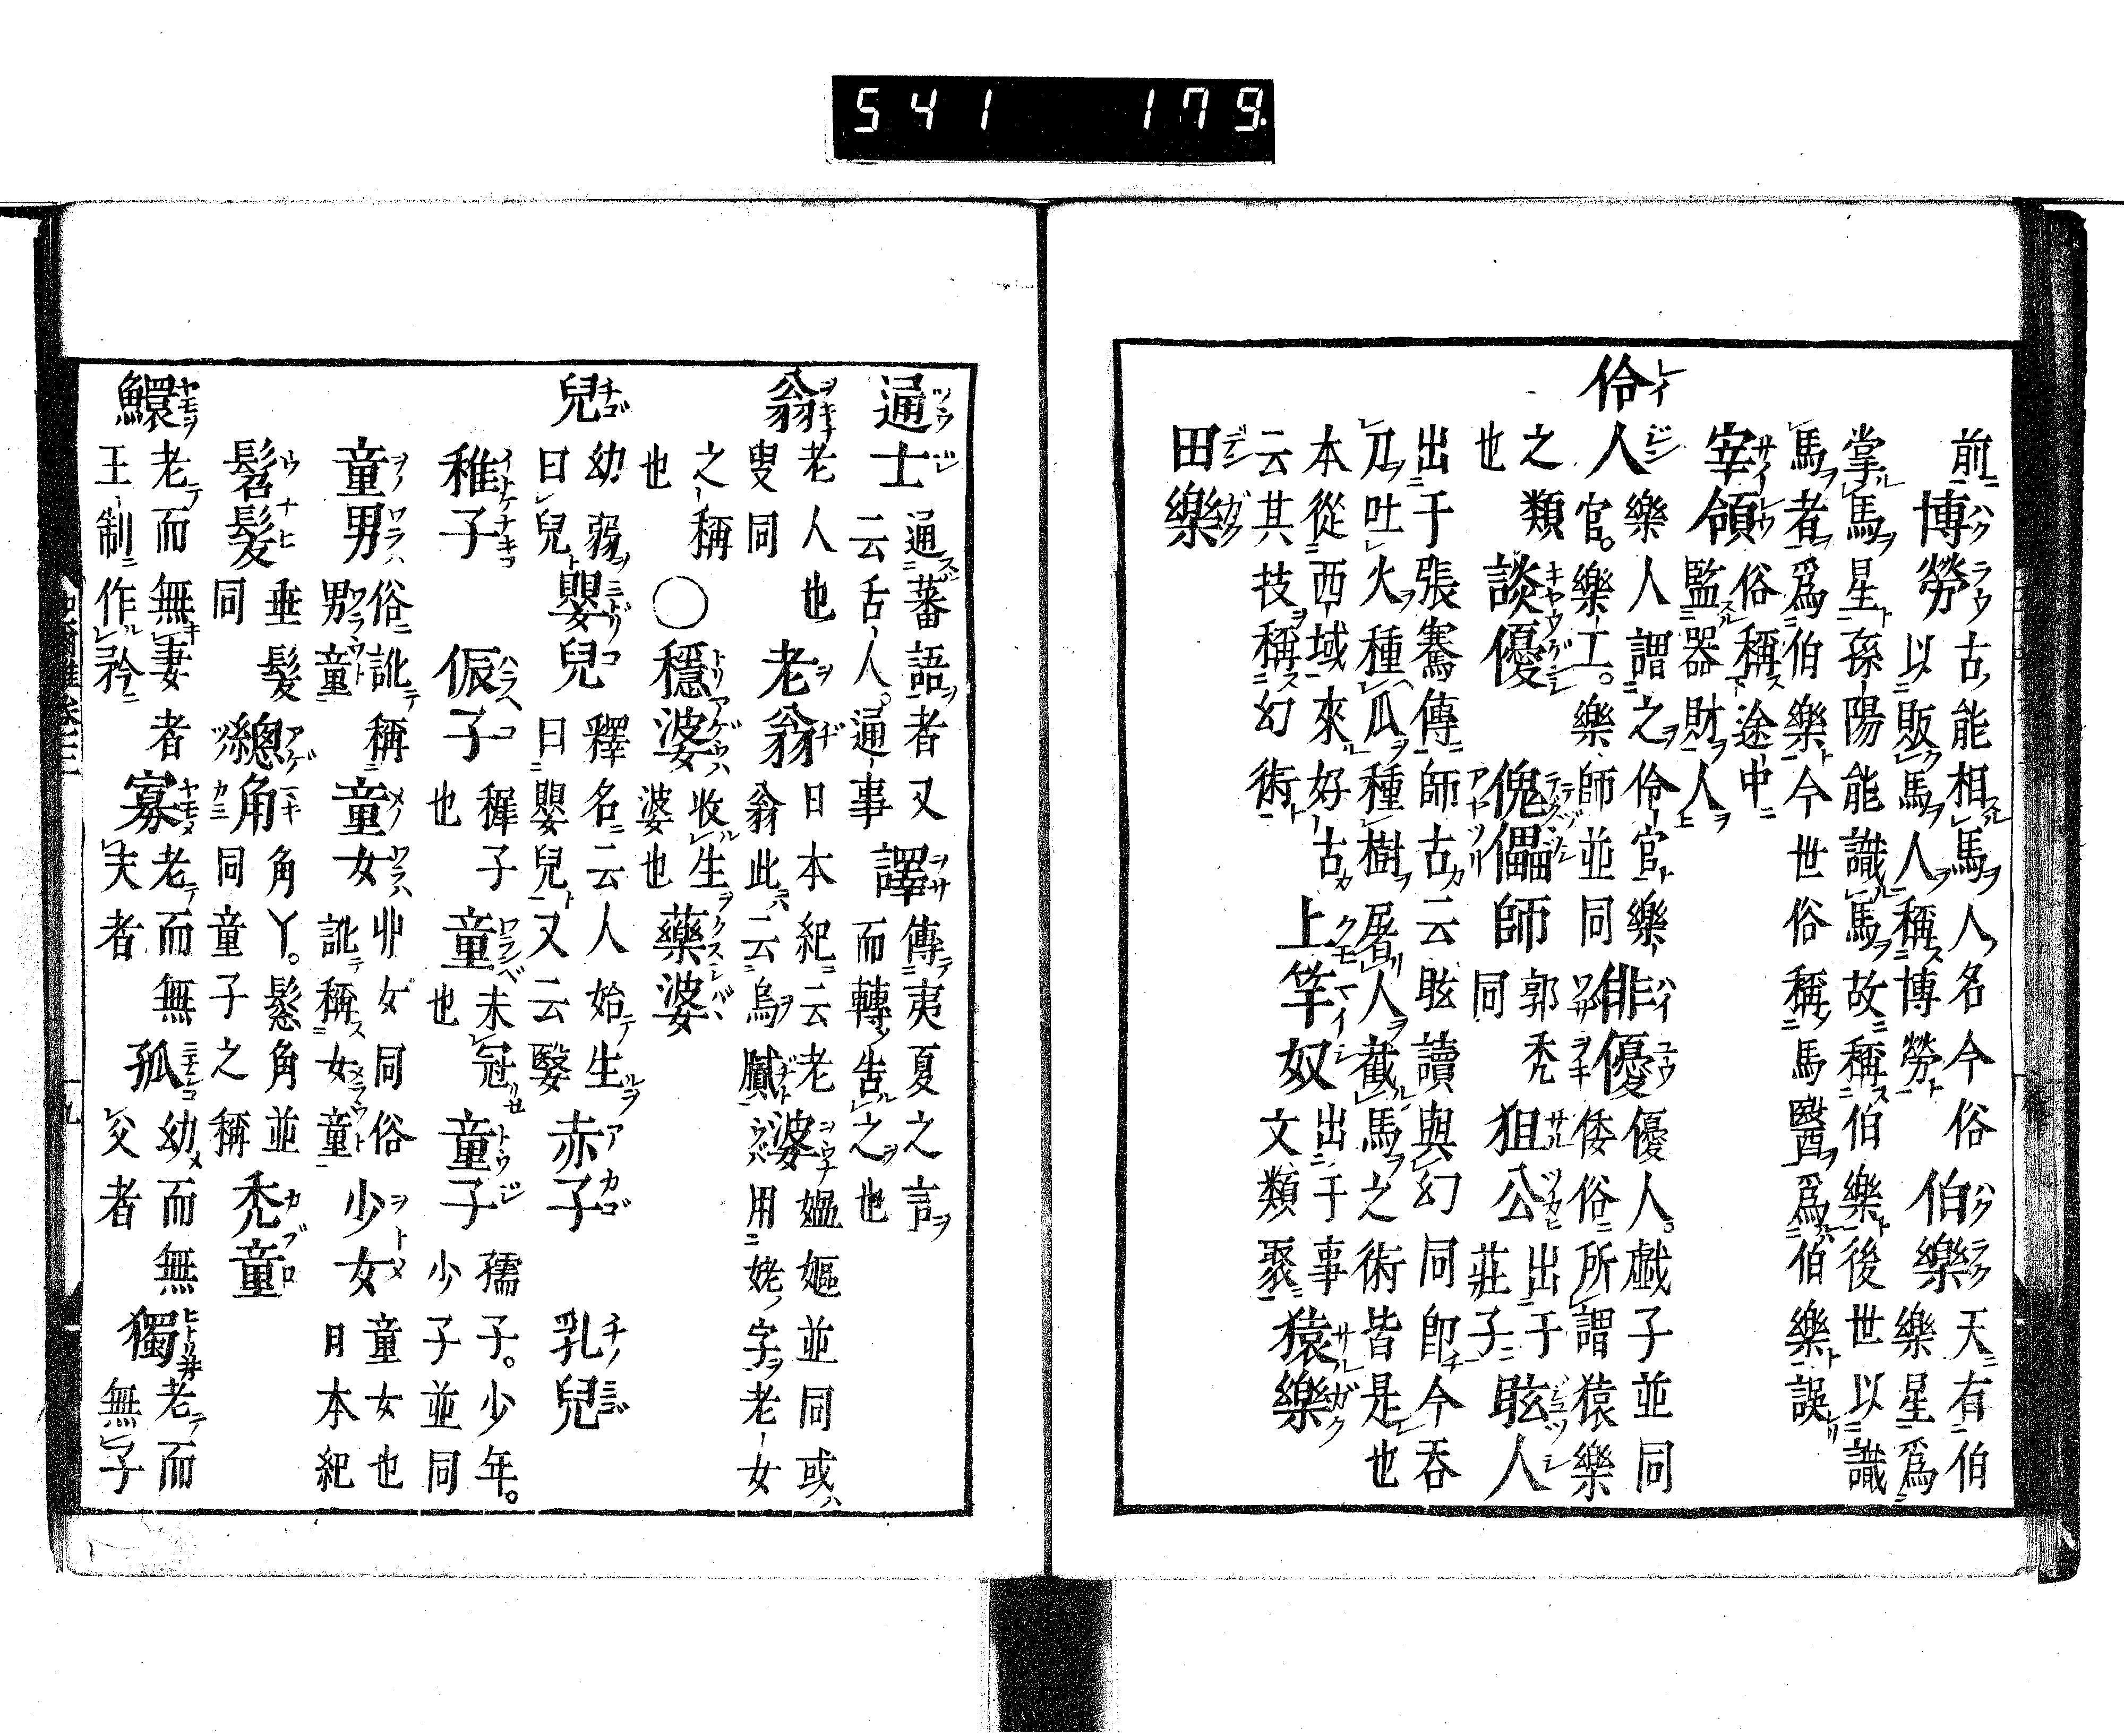 前博勞古能相馬人名今俗以販馬人稱博勞伯樂天有伯樂星爲
掌馬星孫陽能識馬故稱伯樂後世以識馬者爲伯樂今世俗稱馬醫爲伯樂誤
宰領俗稱途中監器財人
伶人樂人謂之伶官樂官。樂工。樂師並同俳優優人。戲子並同倭俗所謂猿樂
之類也談優傀儡師郭禿同狙公出于莊子眩人
出于張騫傳師古云眩讀與幻同即今吞刀吐火種瓜種樹屠人截馬之術皆是也
本從西域來好古云其技稱幻術上竿奴出于事文類聚猿樂
田樂
通士通蕃語者又云舌人。通事譯傳夷夏之言而轉告之也
翁老人也叟同老翁日本紀云老翁此云烏膩婆媼嫗並同或用姥字老女
之稱也〇穩婆收生婆也藥婆
兒幼弱曰兒嬰兒釋名云人始生曰嬰兒又云嫛赤子乳兒
稚子侲子穉子也童未冠也童子孺子。少年。少子並同
童男俗訛稱男童童女丱女同俗訛稱女童少女童女也日本紀
髫髮垂髮同總角角丫。鬆角並同童子之稱禿童
鰥老而無妻者王制作矜寡老而無夫者孤幼而無父者獨老而無子
541 179.